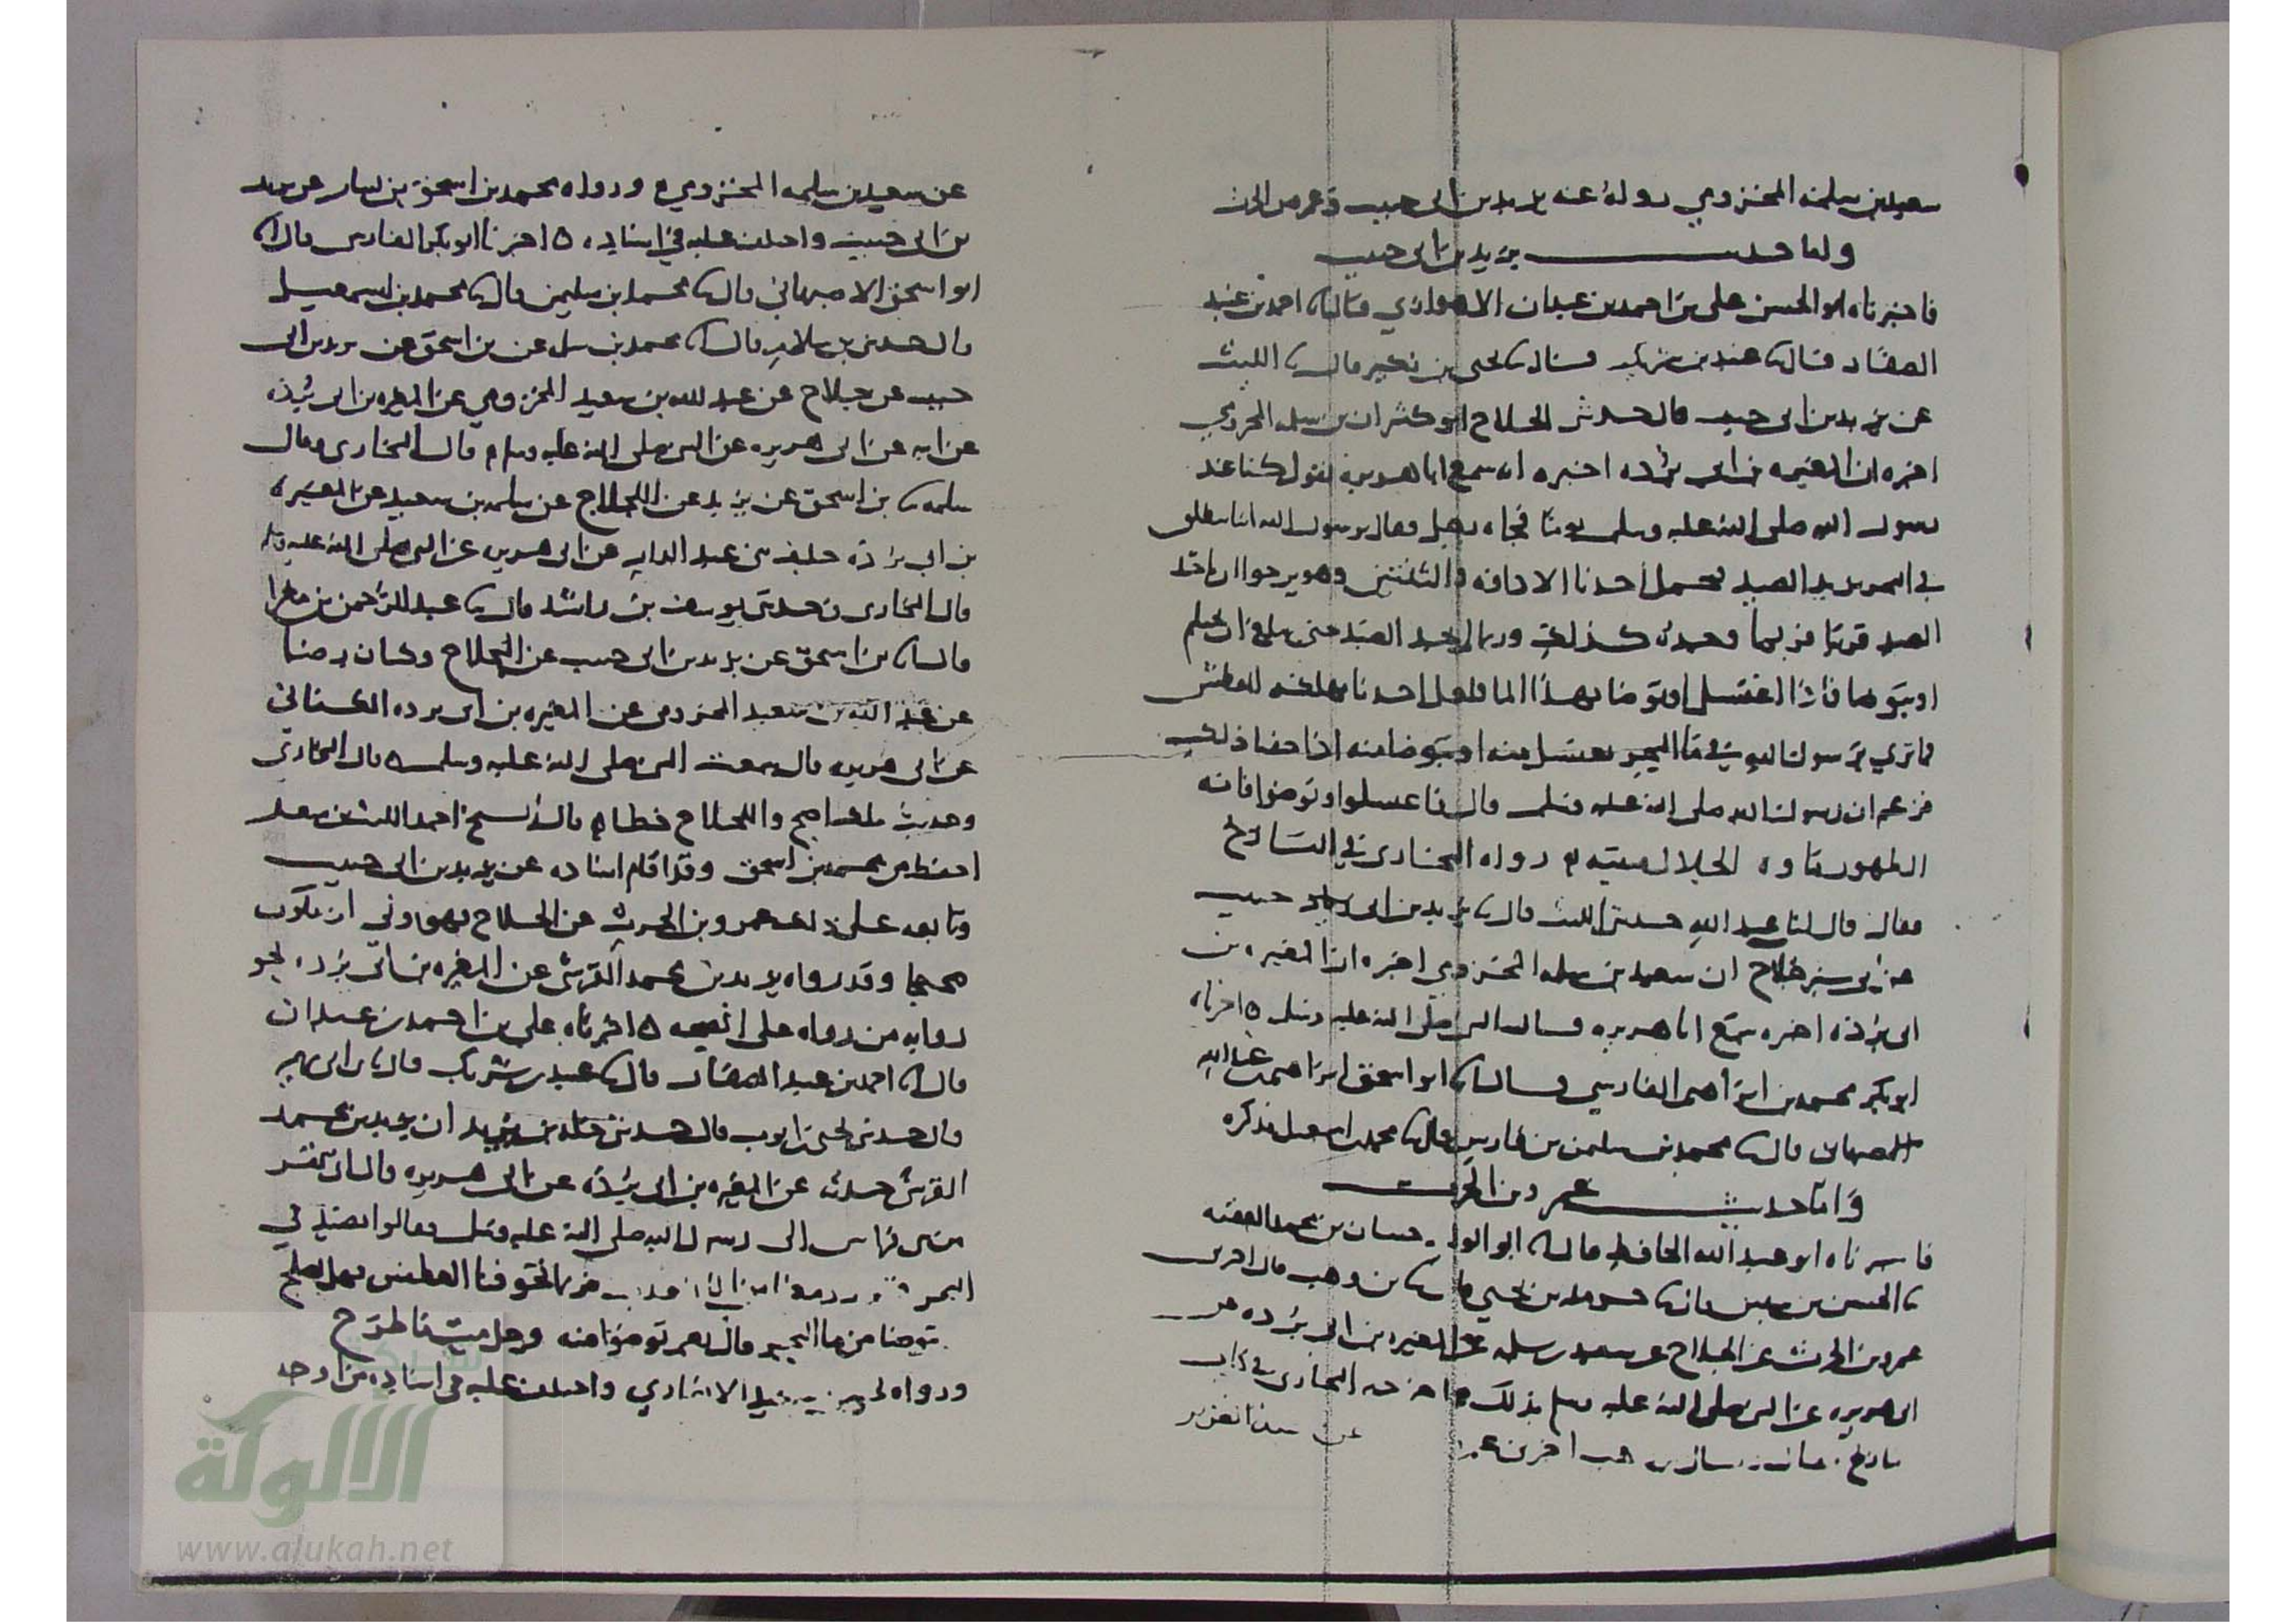 سعيد بن سلمه المخزومي رواه عنه يزيد بن ابى حبيب وعمرو بن الحرث
واما حديث يزيد بن ابى حبيب
فاخبرناه ابو الحسن على بن احمد بن عبدان الاهوازي قال احمد بن عبيد
الصفار قال عبيد بن شريك قال يحيى بن بكير قال الليث
عن يزيد بن ابى حبيب قال حدثنى الجلاح ابو كثير ان بن سلمه المخزومي
اخبره ان المغيره بن ابى برده اخبره انه سمع ابا هريره يقول كنا عند
رسول الله صلى الله عليه وسلم يوما فجاه رجل فقال يرسول الله انا ننطلق
في البحر نريد الصيد فيحمل احدنا الاداوه والثنتين وهو يرجوا ان ياخذ
الصيد قريبا فربما وجده كذلك وربما لم يجد الصيد حتى يبلغ
او يتوضا بهذا الما فلعل احدنا يهلكه العطش
فما ترى يرسول الله في ما البحر نغتسل منه او نتوضا منه اذا خفنا ذلك
فزعم ان رسول الله صلى الله عليه وسلم قال فاغتسلوا وتوضوا فانه
الطهور ماوه الحلال ميته رواه البخارى في التاريخ
فقال قال لنا عبد الله حدثنى الليث قال يزيد بن ابى حبيب
جلاح ان سعيد بن سلمه المخزومي اخبره ان المغيره بن
ابى برده اخبره سمع ابا هريره سال النبى صلى الله عليه وسلم اخبرناه
ابو بكر محمد بن ابراهيم الفارسي قال ابو اسحق ابراهيم بن عبد الله
الاصبهانى قال محمد بن سليمن بن فارس قال محمد بن اسمعيل فذكره
واما حديث عمرو بن الحرث
فاخبرناه ابو عبد الله الحافظ قال ابو الوليد حسان بن محمد الفقيه
الحسن بن سفين قال حرمله بن يحيى قال بن وهب قال اخبرنى
عمرو بن الحرث عن الجلاح عن سعيد بن سلمه عن المغيره بن ابى برده عن
ابى هريره عن النبى صلى الله عليه وسلم بذلك اخرجه البخارى في كتاب
التاريخ
عن سعيد بن سلمه المخزومي ورواه محمد بن اسحق بن يسار عن يزيد
بن ابى حبيب واختلف عليه في اسناده اخبرنا ابو بكر الفارسى قال
ابو اسحق الاصبهاني قال محمد بن سليمن قال محمد بن اسمعيل
قال حدثنى بن سلام قال محمد بن سلمه عن بن اسحق عن يزيد بن ابى
حبيب عن جلاح عن عبد الله بن سعيد المخزومي عن المغيره بن ابى برده
عن ابيه عن ابى هريره عن النبى صلى الله عليه وسلم قال البخارى وقال
سلمه بن اسحق عن يزيد عن اللجلاج عن سلمه بن سعيد عن المغيره
بن ابي برده حليف بنى عبد الدار عن ابى هريره عن النبى صلى الله عليه وسلم
قال البخارى وحدثنى يوسف بن راشد قال عبد الرحمن بن مغرا
قال بن اسحق عن يزيد بن ابى حبيب عن اللجلاج وكان رضا
عن عبد الله بن سعيد المخزومى عن المغيره بن ابى برده الكناني
عن ابى هريره قال سمعت النبى صلى الله عليه وسلم قال البخارى
وحديث اصح واللجلاج خطا قال الشيخ احمد الليث بن سعد
احفظ من محمد بن اسحق وقد اقام اسناده عن يزيد بن ابى حبيب
وتابعه على ذلك عمرو بن الحرث عن الجلاح فهو اولى ان يكون
صحيحا وقد رواه يزيد بن محمد القرشى عن المغيره بن ابى برده نحو
روايه من رواه على الصحه اخبرناه على بن احمد بن عبدان
قال احمد بن عبيد الصفار قال عبيد بن شريك قال بن ابى مريم
قال حدثنى يحيى بن ايوب قال حدثنى خلد بن يزيد ان يزيد بن محمد
القرشى حدثه عن المغيره بن ابى برده عن ابى هريره قال اتى نفر
الى رسول الله صلى الله عليه وسلم فقالوا نصيد في
البحر فربما تخوفنا العطش فهل يصلح
نتوضا من ما البحر قال نعم توضوا منه وحل ميته ما طرح
ورواه يحيى بن سعيد الانصاري واختلف عليه فى اسناده من اوجه
الألوكة
www.alukah.net